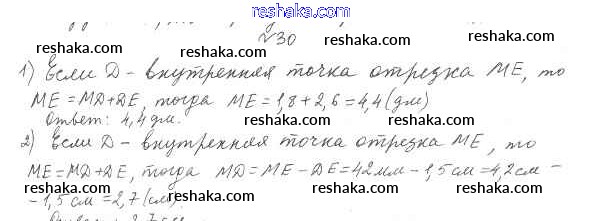 reshaka.com
№30
reshaka.com reshaka.com reshaka.com
1) Если D - внутренняя точка отрезка ME, то
reshaka.com reshaka.com reshaka.com
ME = MD + DE, тогда ME = 1,8 + 2,6 = 4,4 (дм)
Ответ: 4,4 дм.
reshaka.com reshaka.com reshaka.com
2) Если D - внутренняя точка отрезка ME, то
reshaka.com reshaka.com reshaka.com
ME = MD + DE, тогда MD = ME - DE = 42 мм - 1,5 см = 4,2 см -
- 1,5 см = 2,7 (см).
reshaka.com reshaka.com reshaka.com